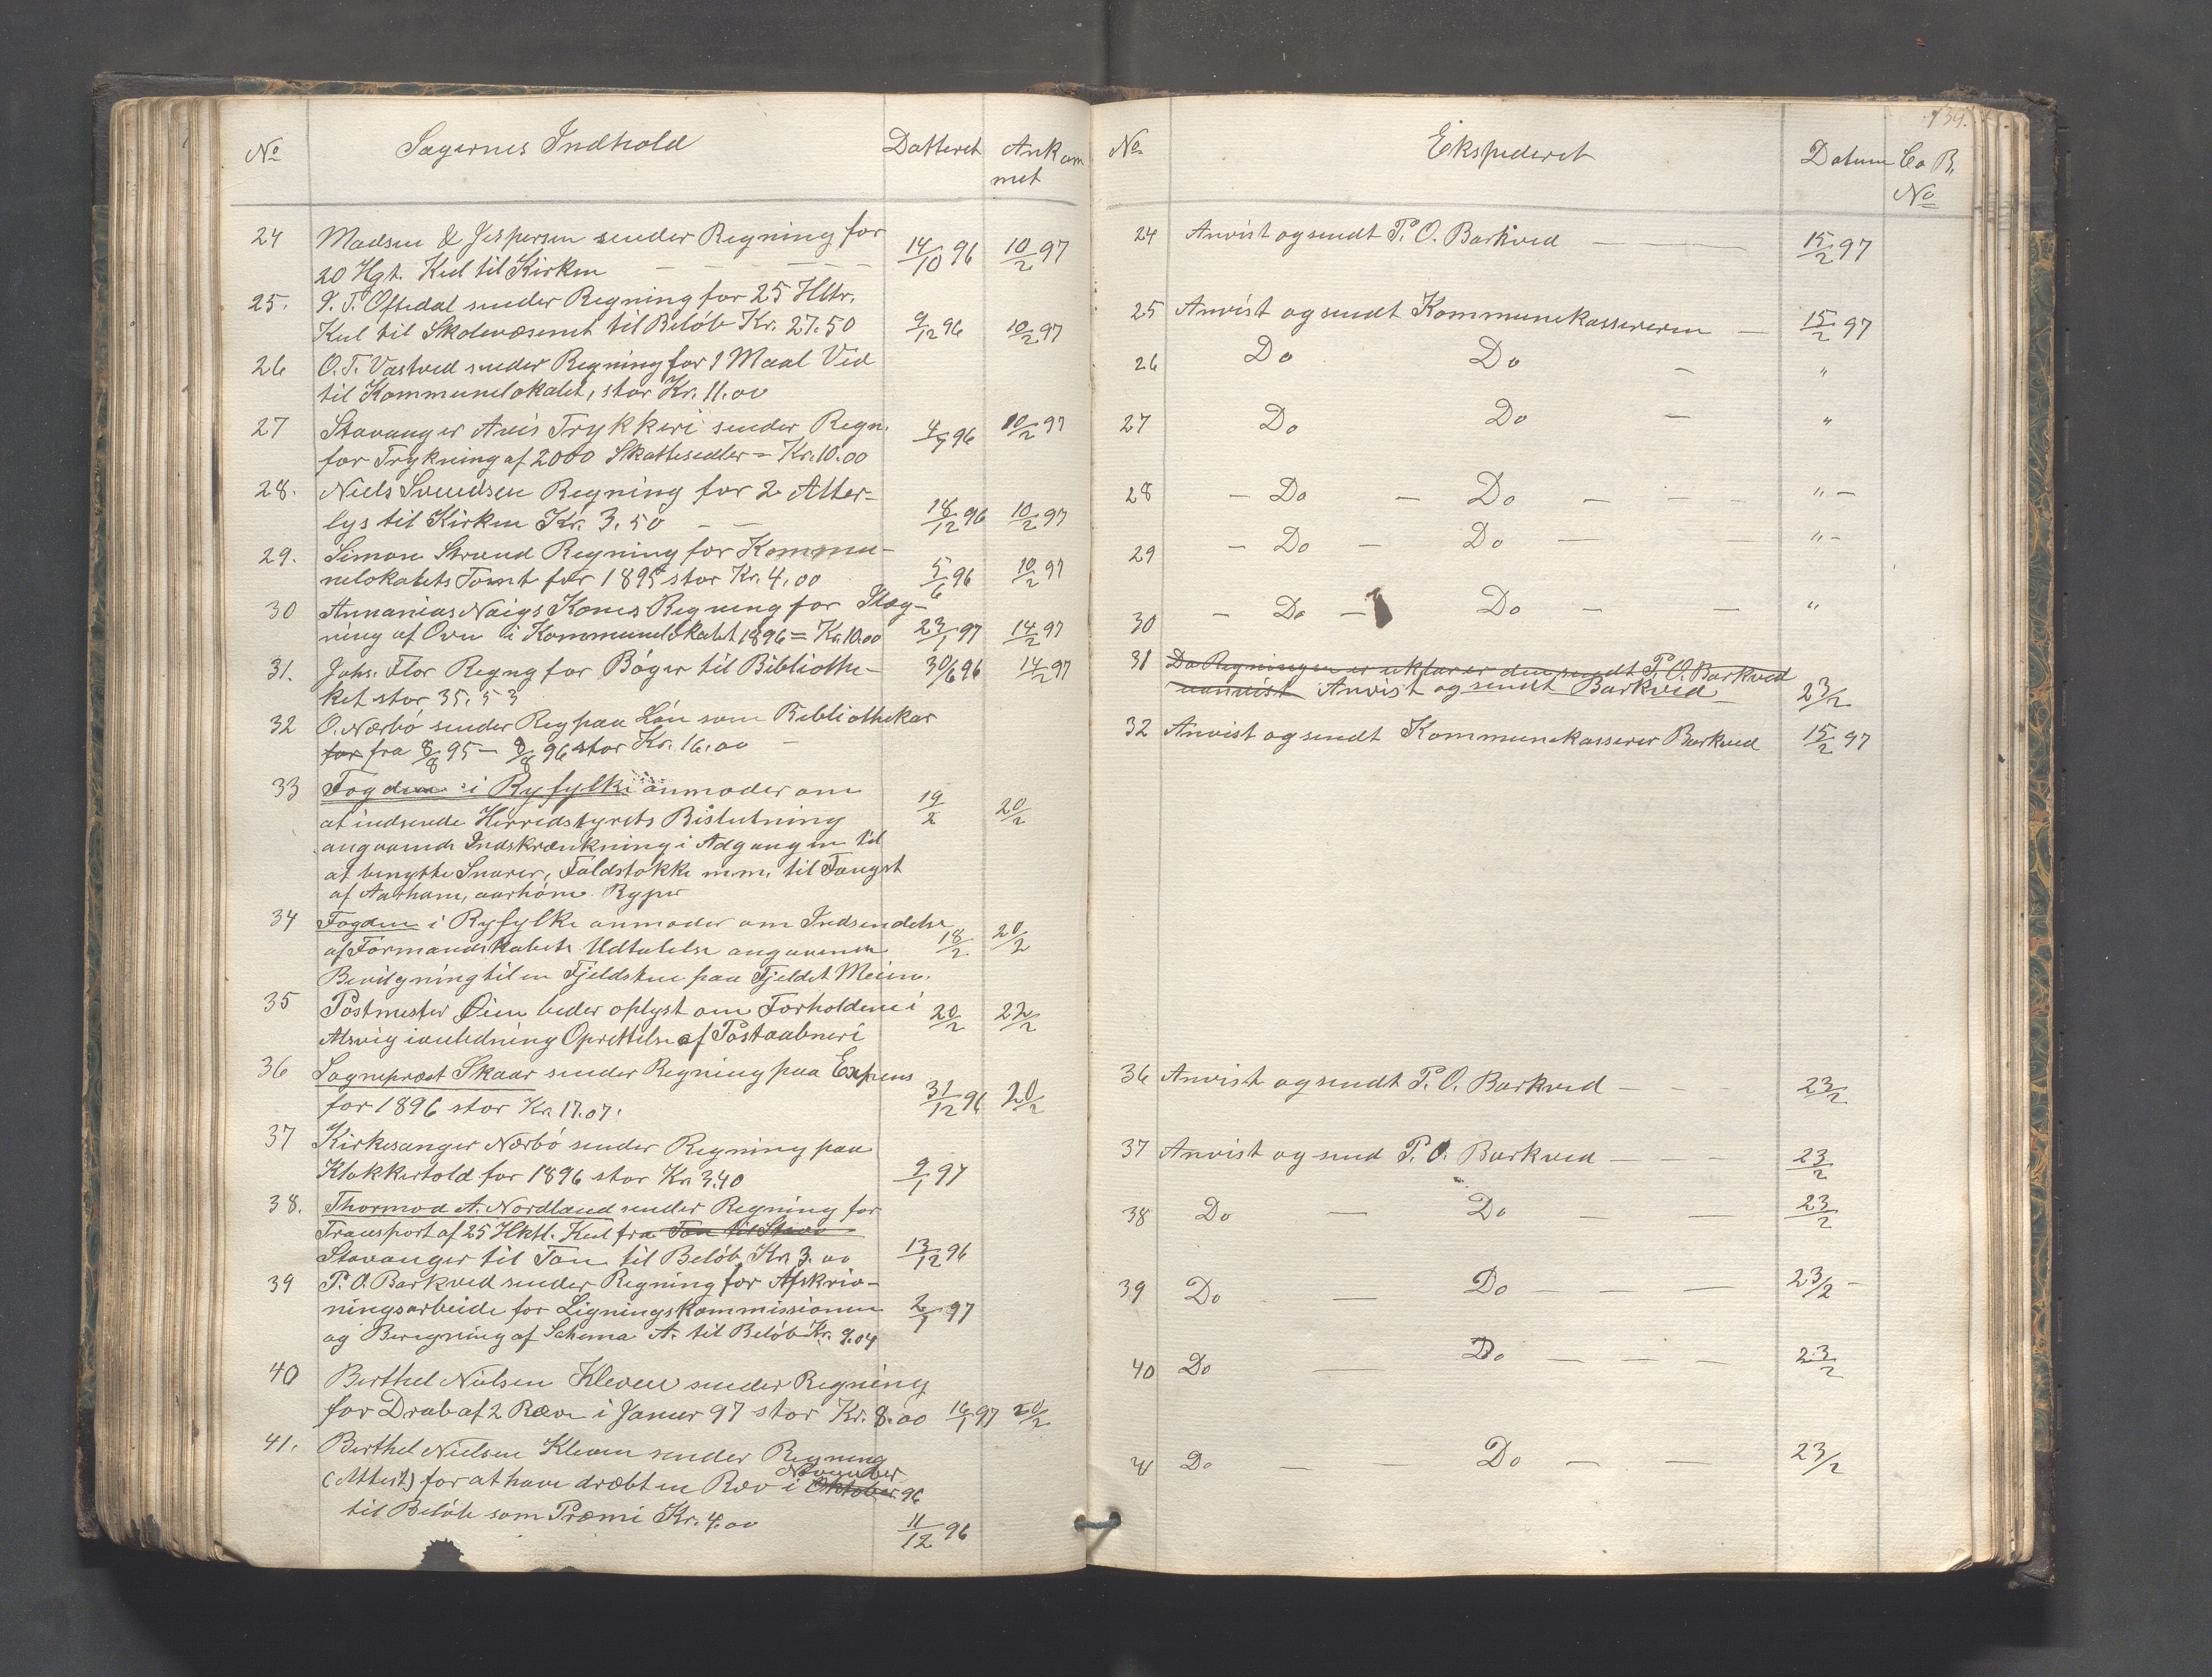 No Sagernes Indhold Datteret Ankommet
24 Madsen & Jespersen sender Regning for
20 Hgt. Kul til Kirken — — — — 14/10 96 10/2 97
25. T. Oftedal sender Regning for 25 Hltr.
Kul til Skolevæsenet til Beløb Kr. 27.50 9/12 96 10/2 97
26 O. T. Vastved sender Regning for 1 Maal Ved
til Kommunelokalet, stor Kr. 11.00
27 Stavanger Avis Trykkeri sender Regn.
for Trykning af 2000 Skattesedler = Kr. 10.00 96 10/2 97
28. Niels Svendsen Regning for 2 Alter-
lys til Kirken Kr. 3.50 — — 18/12 96 10/2 97
29. Simon Strand Regning for Kommu-
nelokalets Tomt for 1895 stor Kr. 4,00 5/6 96 10/2 97
30 Annanias Naigs Kones Regning for Læg-
ning af Ovn i Kommunelokalet 1896 = Kr. 10.00 23/1 97 14/2 97
31. Johs. Flor Regng for Bøger til Bibliothe- 30/6 96 14/2 97
ket stor 35.53
32 O. Nærbø sender Reg paa Løn som Bibliothekar
for fra 8/8 95 — 8/8 96 stor Kr. 16.00 —
33 Fogden i Ryfylke anmoder om
at indsende Herredstyrets Beslutning 19/2 20/2
angaaende Indskrænkning i Adgangen til
at benytte Snarer, Faldstokke m.m. til Fangst
af Aarhane, aarhøne Ryper
34 Fogden i Ryfylke anmoder om Indsendelse
af Formandskabets Udtalelse angaaende 18/2 20/2
Bevilgning til en Fjeldstue paa Fjeldet Meien.
35 Postmester Øien beder oplyst om Forholdene i 20/2 22/2
Alsvig i anledning Oprettelse af Postaabneri
36 Sognepræst Skaar sender Regning paa Expens
for 1896 stor Kr. 17.07. 31/12 96 20/2
37 Kirkesanger Nærbø sender Regning paa
Klokkertold for 1896 stor Kr. 3.40 9/1 97
38. Thormod A. Nordland sender Regning for
Transport af 25 Hktl. Kul fra Tau til Stav
Stavanger til Tau til Beløb Kr. 3.00 13/12 96
39 P. O. Barkved sender Regning for Afskriv-
ningsarbeide for Ligningskommissionen 2/1 97
og Beregning af Schema A. til Beløb Kr. 9.04
40 Berthel Nielsen Kleven sender Regning
for Drab af 2 Ræve i Januar 97 stor Kr. 8.00 16/1 97 20/2
41. Berthel Nielsen Kleven sender Regning
November
(Attest) for at have dræbt en Ræv i Oktober 96
til Beløb som Præmi Kr. 4.00 11/12 96
134.
No Ekspederet Datum Co B. No
24 Anvist og sendt P. O. Barkved — 15/2 97
25 Anvist og sendt Kommunekassereren — 15/2 97
26 Do Do — "
27 Do Do — "
28 — Do — Do — — — " —
29 — Do — Do — — " —
30 — Do — Do — — "
31 Do Regningen er uklar er den sendt P. O. Barkved
uanvist Anvist og sendt Barkved 23/2
32 Anvist og sendt Kommunekasserer Barkved 15/2 97
36 Anvist og sendt P. O. Barkved — — — 23/2
37 Anvist og send P. O. Barkved — — — 23/2
38 Do — Do — — 23/2
39 Do — Do — — — 23/2 —
40 Do — Do — — — 23/2
41 Do — — Do — — 23/2